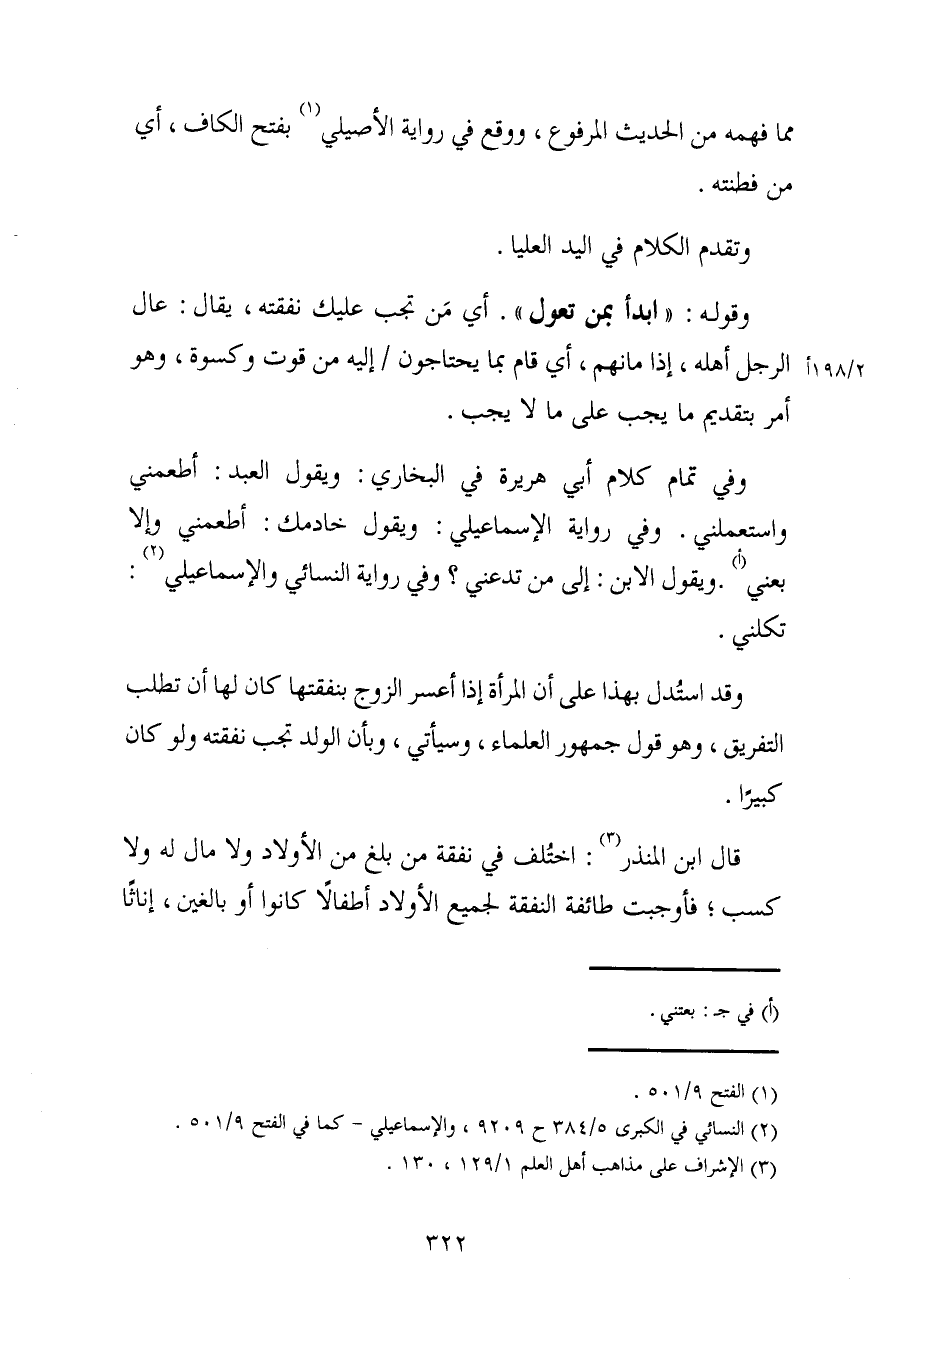 مما فهمه من الحديث المرفوع ، ووقع في رواية الأصيلي(١) بفتح الكاف ، أي
من فطنته .
وتقدم الكلام في اليد العليا .
وقوله : « ابدأ بمن تعول » . أي مَن تجب عليك نفقته ، يقال : عال
٢/١٩٨أ الرجل أهله ، إذا مانهم ، أي قام بما يحتاجون / إليه من قوت وكسوة ، وهو
أمر بتقديم ما يجب على ما لا يجب .
وفي تمام كلام أبي هريرة في البخاري : ويقول العبد : أطعمني
واستعملني . وفي رواية الإسماعيلي : ويقول خادمك : أطعمني وإلا
بعني(أ) .ويقول الابن : إلى من تدعني ؟ وفي رواية النسائي والإسماعيلي(٢) :
تكلني .
وقد استُدل بهذا على أن المرأة إذا أعسر الزوج بنفقتها كان لها أن تطلب
التفريق ، وهو قول جمهور العلماء ، وسيأتي ، وبأن الولد تجب نفقته ولو كان
كبيرًا .
قال ابن المنذر(٣) : اختُلف في نفقة من بلغ من الأولاد ولا مال له ولا
كسب ؛ فأوجبت طائفة النفقة لجميع الأولاد أطفالًا كانوا أو بالغين ، إناثًا
(أ) في جـ : بعتني .
(١) الفتح ٥٠١/٩ .
(٢) النسائي في الكبرى ٣٨٤/٥ ح ٩٢٠٩ ، والإسماعيلي - كما في الفتح ٥٠١/٩ .
(٣) الإشراف على مذاهب أهل العلم ١٢٩/١ ، ١٣٠ .
٣٢٢